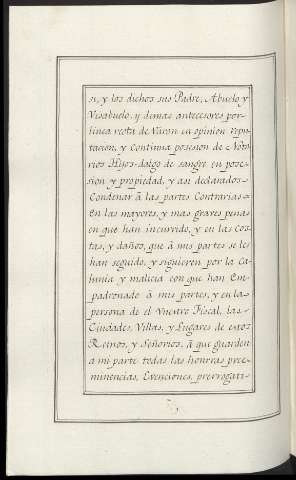 si, y los dichos sus Padre, Abuelo y
Visabuelo, y demas antecesores por
linea recta de Varon en opinion repu-
tacion, y continua posesion de Noto
rios Hijos-dalgo de sangre en pose-
sion y propiedad, y asi declarados
Condenar â las partes Contrarias
en las mayores, y mas graves penas
en que han incurrido, y en las cos-
tas, y daños, que â mis partes se les
han seguido, y siguieren por la Ca-
lunia y malicia con que han Em-
padronado â mis partes, y en la
persona de el Vuestro Fiscal, las
Ciudades, Villas, y Lugares de estos
Reinos, y Señorios, â que guarden
a mi parte todas las honrras pree-
minencias, Exenciones, prerrogati-